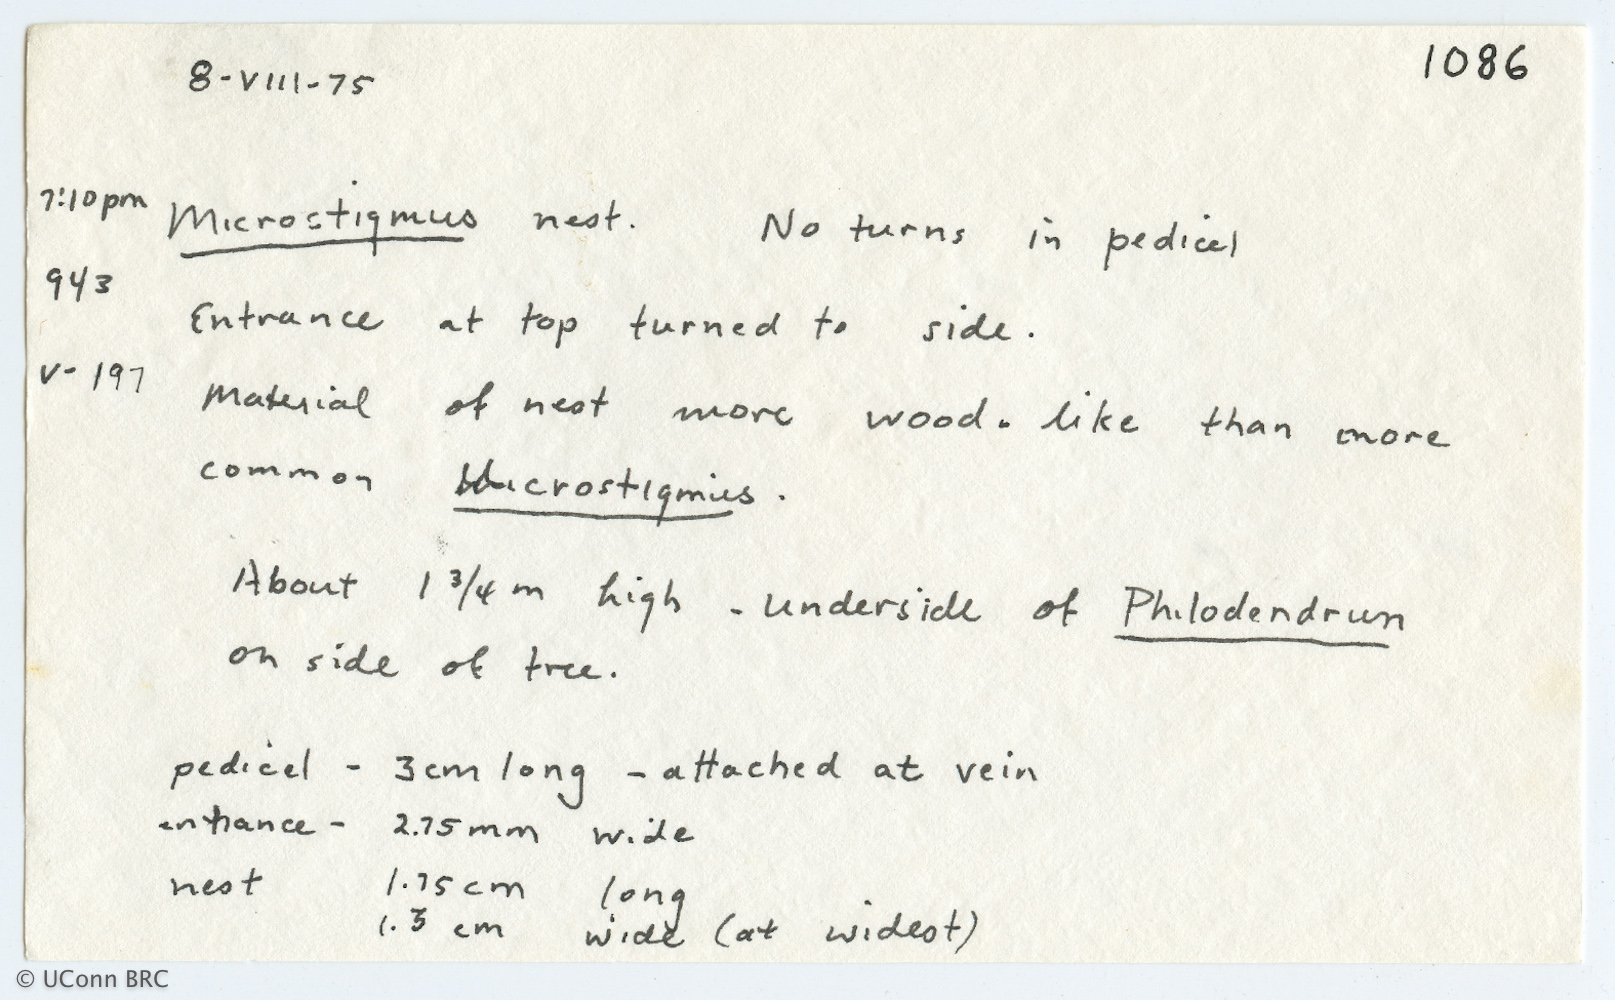 8-VIII-75
1086
7:10pm Microstigmus nest. No turns in pedicel
943
Entrance at top turned to side.
V-197
Material of nest more wood-like than more
common Microstigmus.
About 1 3/4 m high - underside of Philodendrun
on side of tree.
pedicel - 3cm long - attached at vein
entrance - 2.75mm wide
nest 1.75cm long
1.3 cm wide (at widest)
© UConn BRC